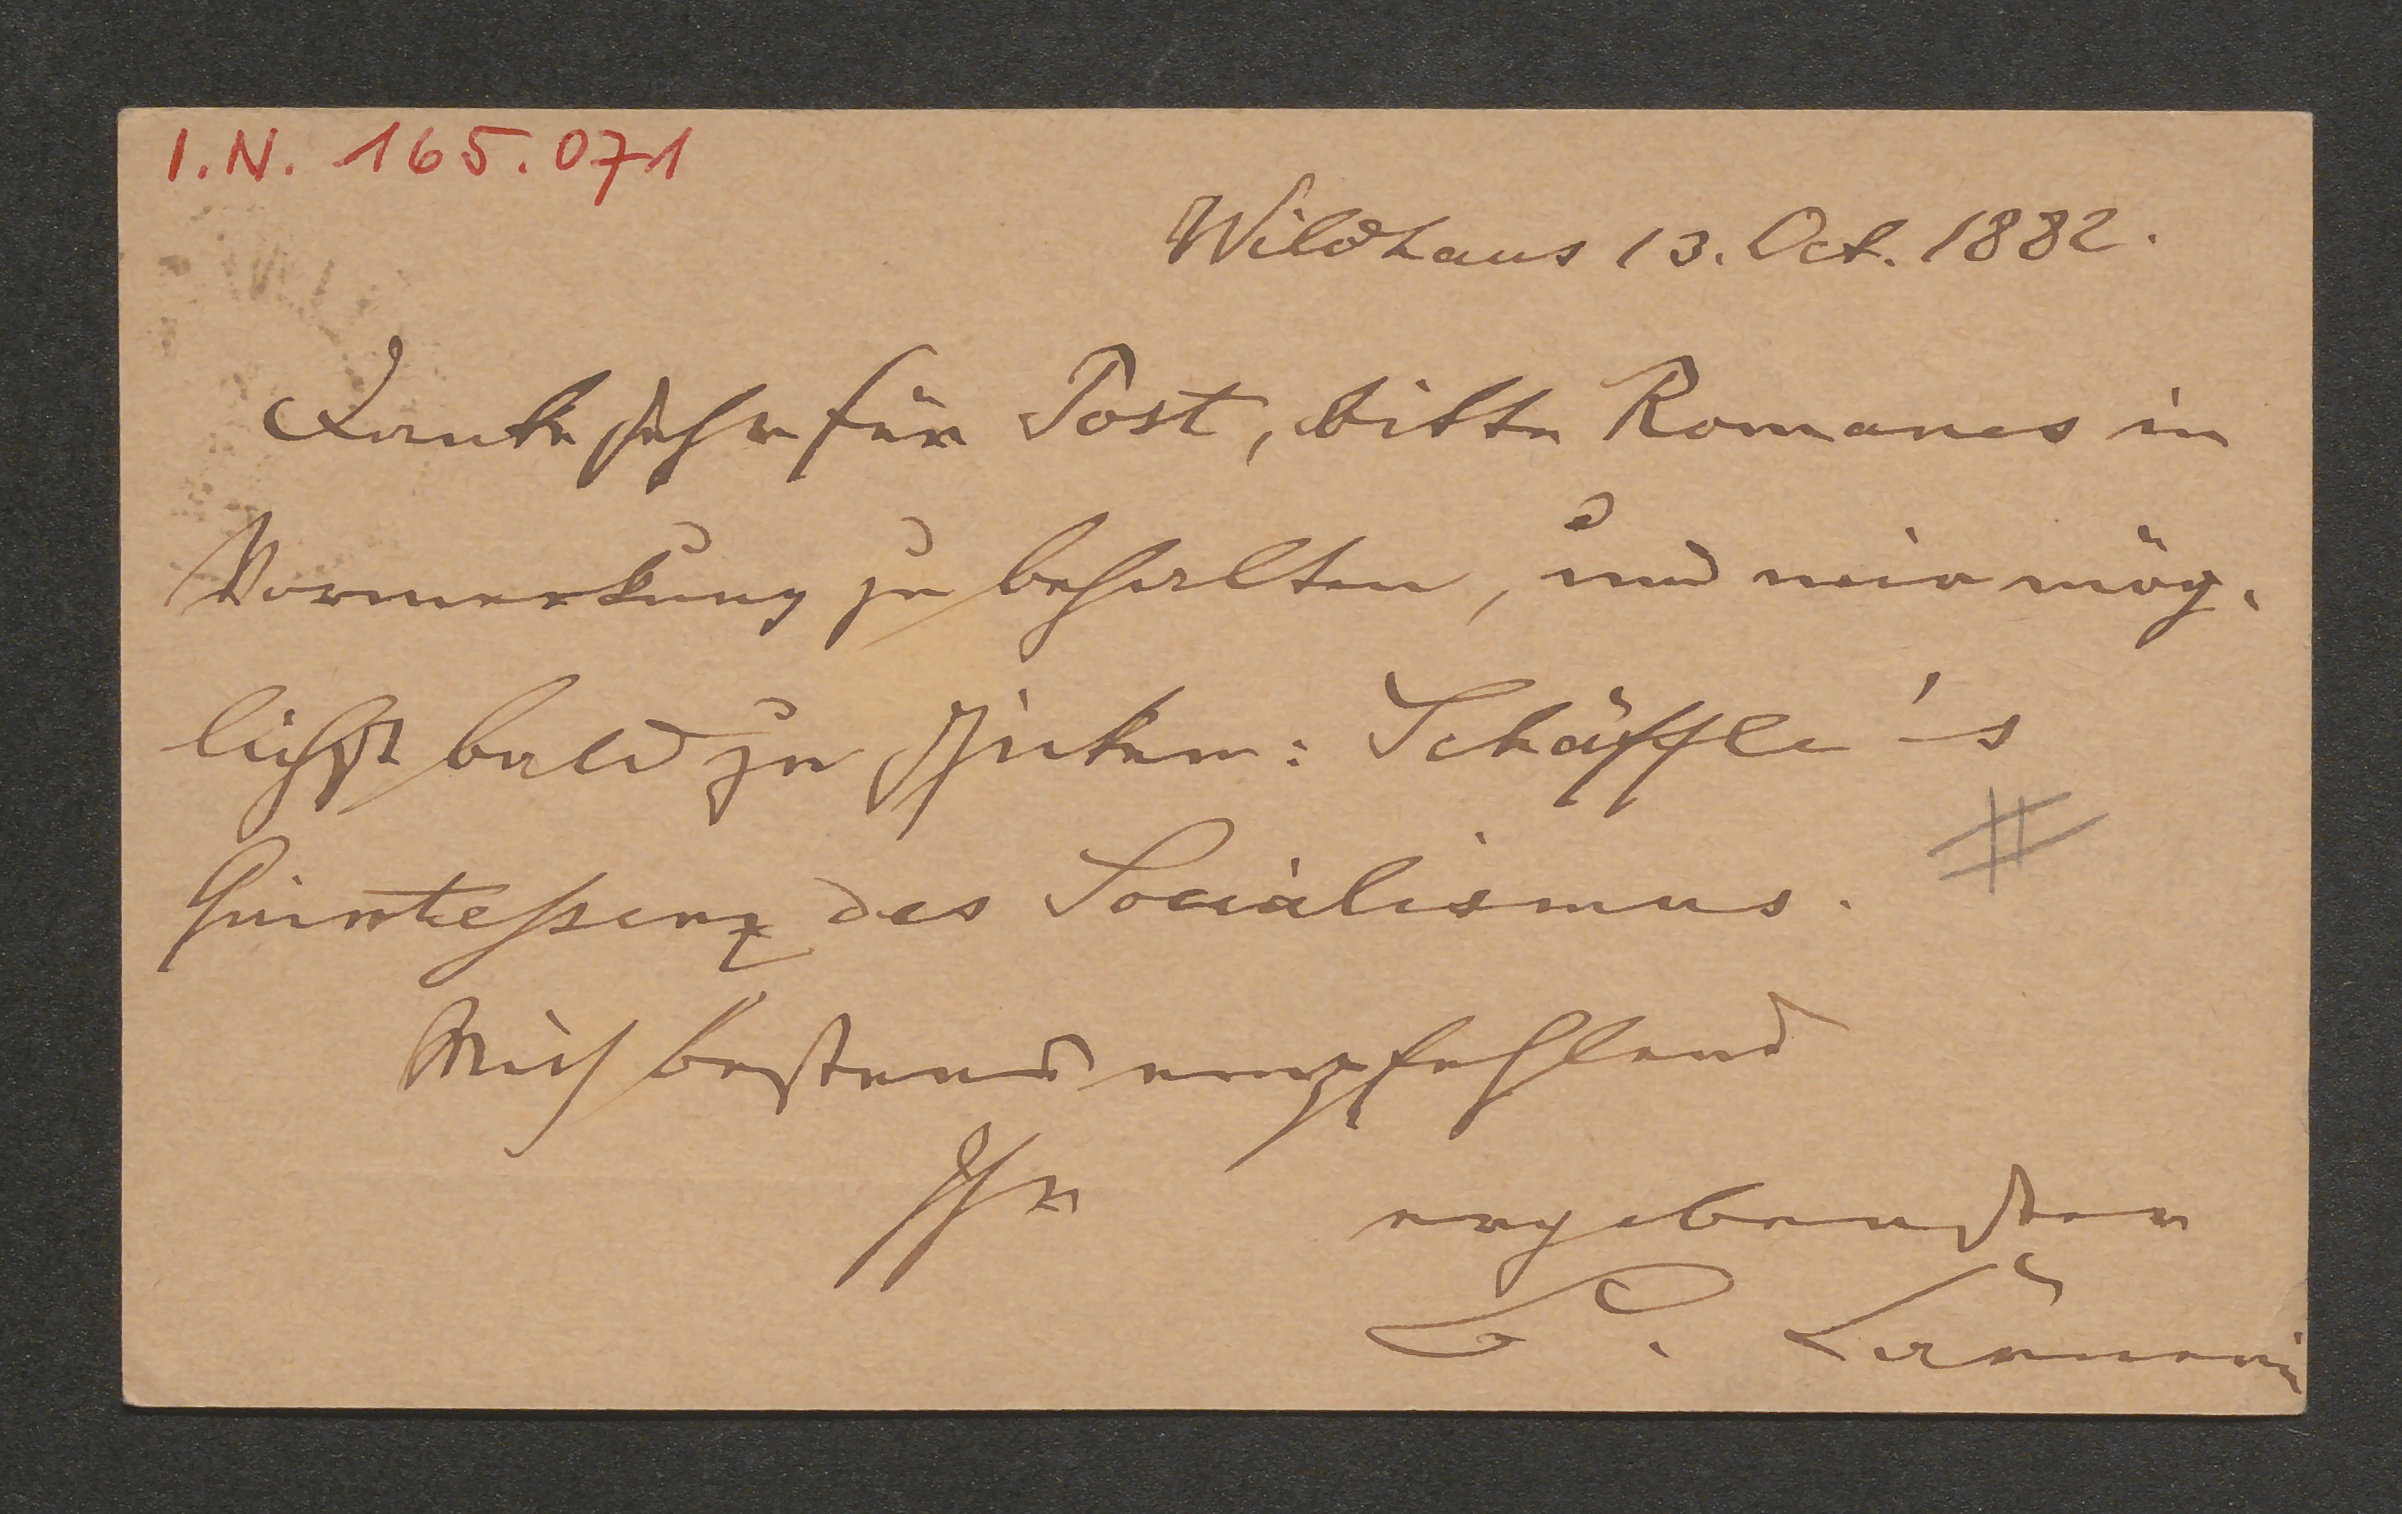 I.N. 165.071
Wildhaus 13. Oct. 1882.
Danke sehr für Post, bitte Romanes in
Vormerkung zu behalten, und mir mög-
lichst bald zu schicken: Schäffle's
Quintessenz des Socialismus.
Mich bestens empfehlend
Ihr ergebenster
B. Carneri